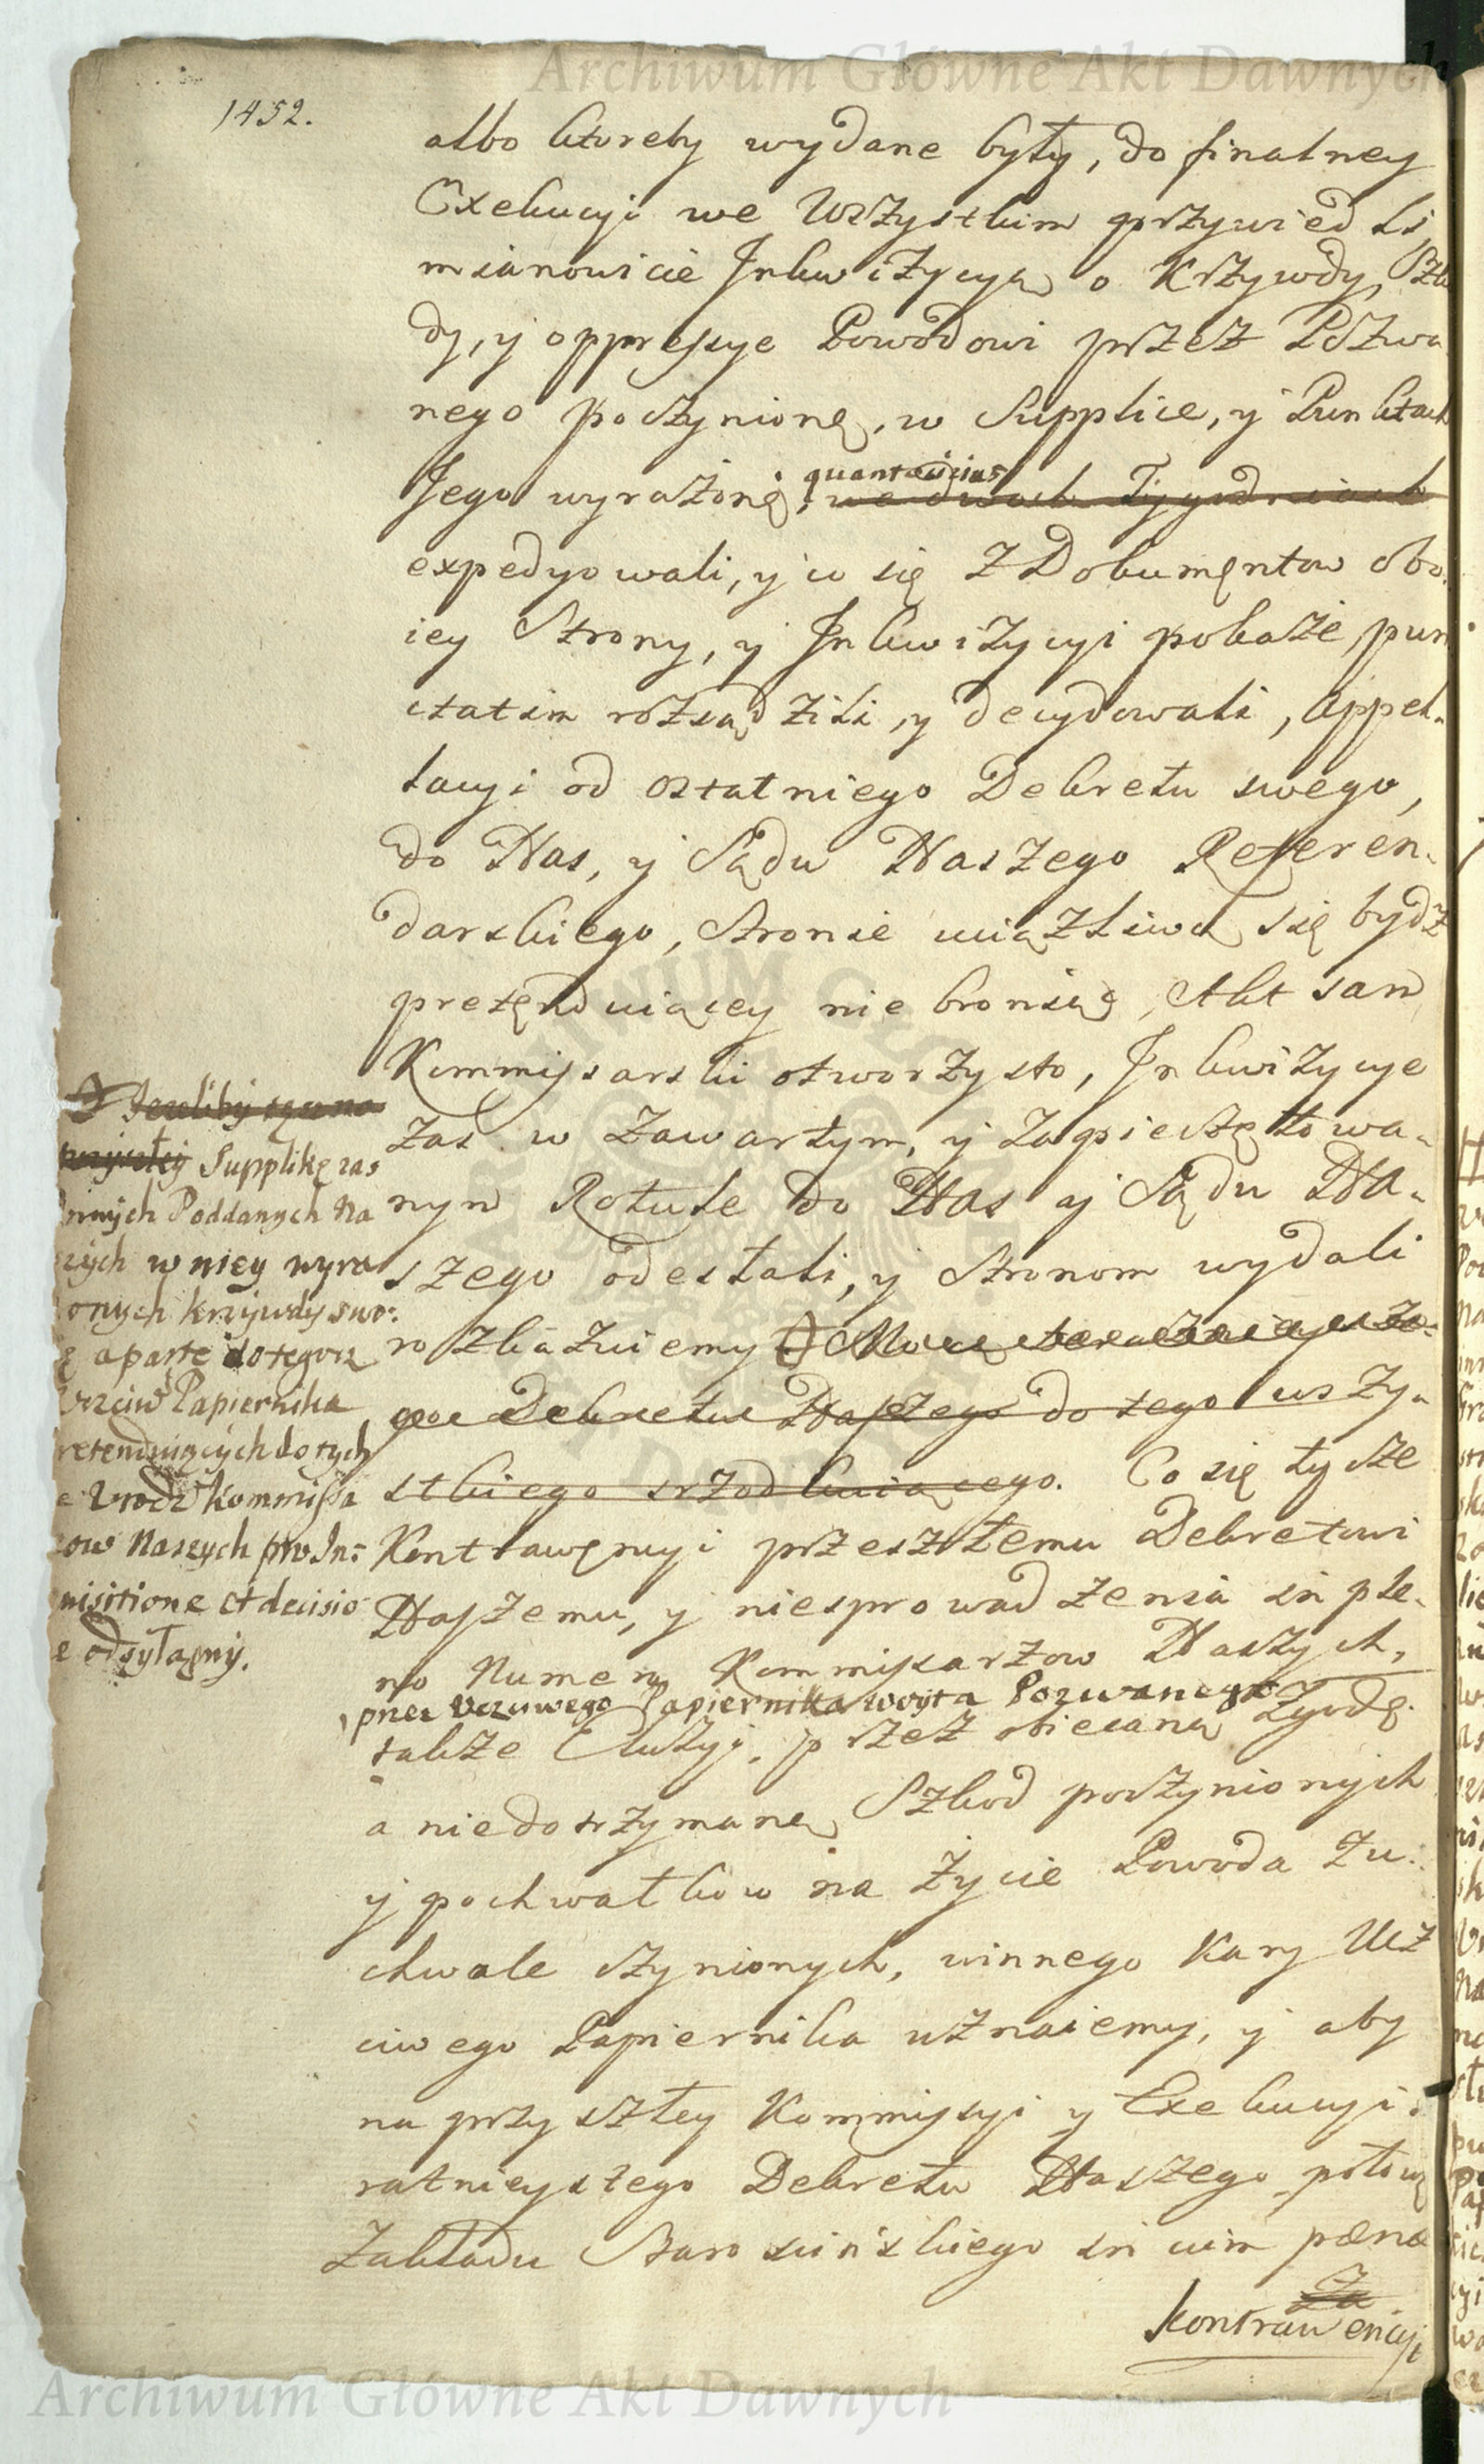 Archiwum Główne Akt Dawnych
1452.
albo ktoreby wydane były, do finalney
Exekucyi we Wszystkim przywied li,
mianowicie Inkwizycyą o Krzywdy, Szko
dy, y oppressye Powodowi przez Pozwa
nego poczynionę, w Supplice, y Punktach
Jego wyrażonę, quantocius
we dwoch Tygodniach
expedyowali, y co się z Dokumentow obo
iey Strony, y Inkwizycyi pokaże, pun
ctatim rozsądzili, y decydowali, Appel-
lacyi od ostatniego Dekretu swego,
do Nas, y Sądu Naszego Referen-
darskiego, Stronie uciążliwą się bydz
pretęnduiącey nie bronią, Akt sam
Kommissarski otworzysto, Inkwizycye
zas w Zawartym, y zapieczętowa-
nym Rotule do Nas y Sądu Na-
szego odesłali, y Stronom wydali
rozkażuiemy
go Dekretu Naszego do tego wszy-
stkiego srzodkuiącego. Co się tycze
Kontrawęncyi przeszłemu Dekretowi
Naszemu, y niesprowadzenia in ple-
no Numero Kommissarzow Naszych,
przez Uczciwego Papiernika woyta Pozwanego
także Eluzyi, przez obiecaną Zgodę.
a niedotrzymaną Szkod poczynionych
y pochwałkow na życie Powoda Zu-
chwale czynionych, winnego Kary Ucz
ciwego Papiernika uznaiemy, y aby
na przyszłey Kommissyi y Exekucyi.
ratnieyszego Dekretu Naszego połową
Zakładu Staroscińskiego in vim pænæ
Za
kontrawencyi
Jezeliby
przyszłey Supplikę zas
innych Poddanych Na
szych w niey wyra
onych krzywdy swo:
ę aparte do tegoż
Uczciw Papiernika
retenduiących do tych
e Urodz Kommissa
zow Naszych pro In:
quisitione et decisio
e odsyłamy.
Archiwum Główne Akt Dawnych